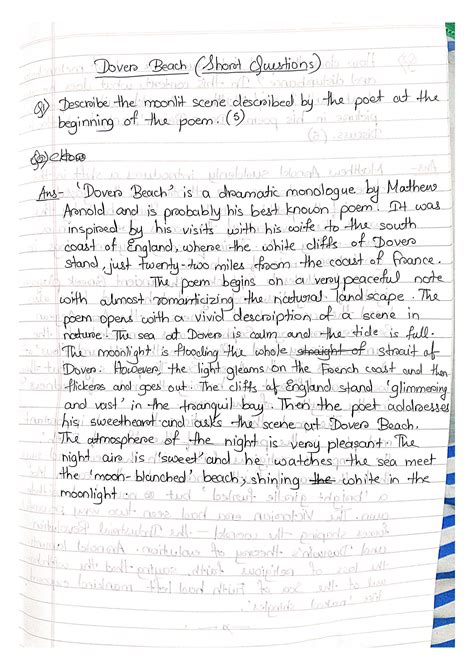 Dover Beach (Short Questions)
Q1) Describe the moonlit scene described by the poet at the
beginning of the poem. (5)
Ans- 'Dover Beach' is a dramatic monologue by Mathew
Arnold and is probably his best known poem. It was
inspired by his visits with his wife to the south
coast of England, where the white cliffs of Dover
stand, just twenty-two miles from the coast of France.
The poem begins on a very peaceful note
with almost romanticizing the natural landscape. The
poem opens with a vivid description of a scene in
nature. The sea at Dover is calm and the tide is full.
The moonlight is flooding the whole straight of strait of
Dover. However, the light gleams on the French coast and then
flickers and goes out. The cliffs of England stand 'glimmering
and vast' in the tranquil bay. Then the poet addresses
his sweetheart and asks the scene at Dover Beach.
The atmosphere of the night is very pleasant. The
night air is 'sweet' and he watches the sea meet
the 'moon-blanched' beach, shining the white in the
moonlight.